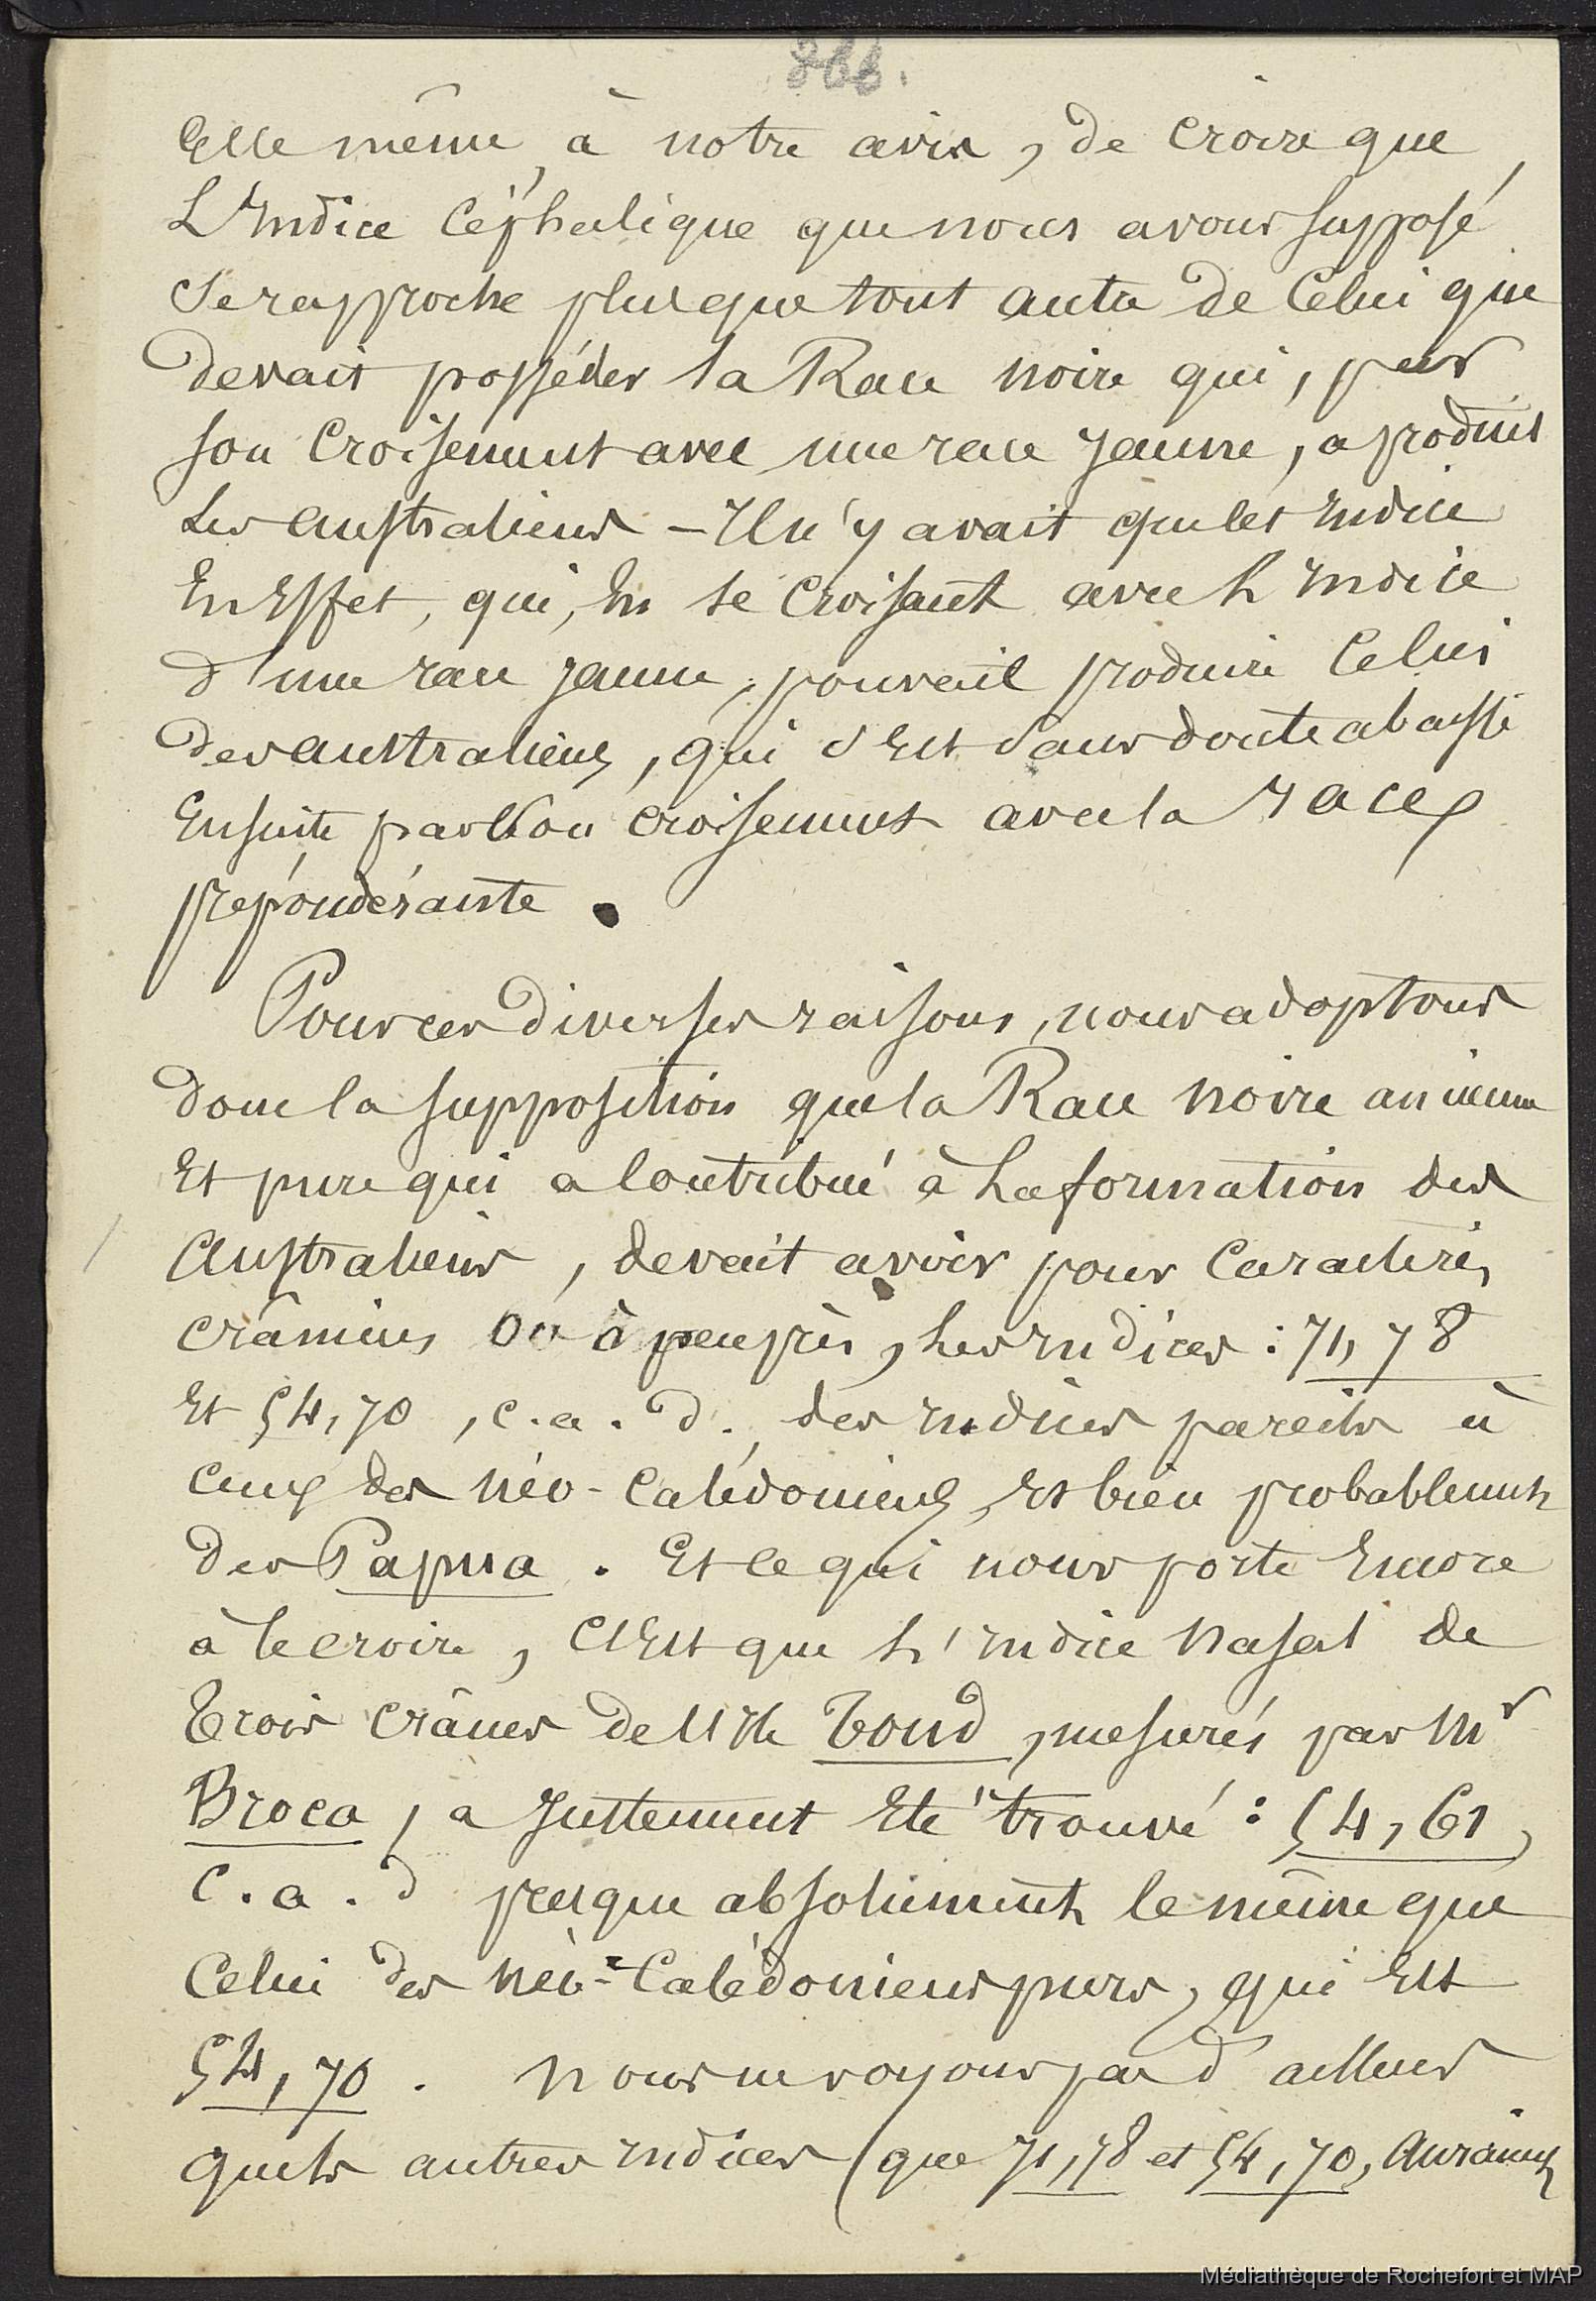 866.
Elle même, à notre avis, de croire que
L'Indice Céphalique que nous avons supposé
Se rapproche plus que tout autre de Celui que
devait posséder la Race noire qui, par
son Croisement avec une race jaune, a produit
Les Australiens – Il n'y avait que les Indice
En Effet, qui, En se Croisant avec L'Indice
d'une race jaune, pouvait produire Celui
des Australiens, qui s'est sans doute abaissé
Ensuite par son croisement avec la race
prépondérante.
Pour ces diverses raisons, nous adoptons
donc la supposition que la Race noire ancienne
Et pure qui a Contribué à La formation des
Australiens, devait avoir pour Caractères
crâniens ou à peu près, Les Indices : 71,78
Et 54,70, c. a. d., des Indices pareils à
Ceux des Néo-Calédoniens, Et bien probablement
des Papua. Et ce qui nous porte Encore
à le croire, C'Est que L'Indice Nasal de
Trois Crânes de l'Ile Toud, mesurés par Mr
Broca, a Justement Eté trouvé : 54,61,
C. a. d presque absolument le même que
Celui des Néo-Calédoniens purs, qui Est
54,70. Nous ne voyons pas d'ailleurs
quels autres Indices (que 71,78 et 54,70, Auraient
Médiathèque de Rochefort et MAP